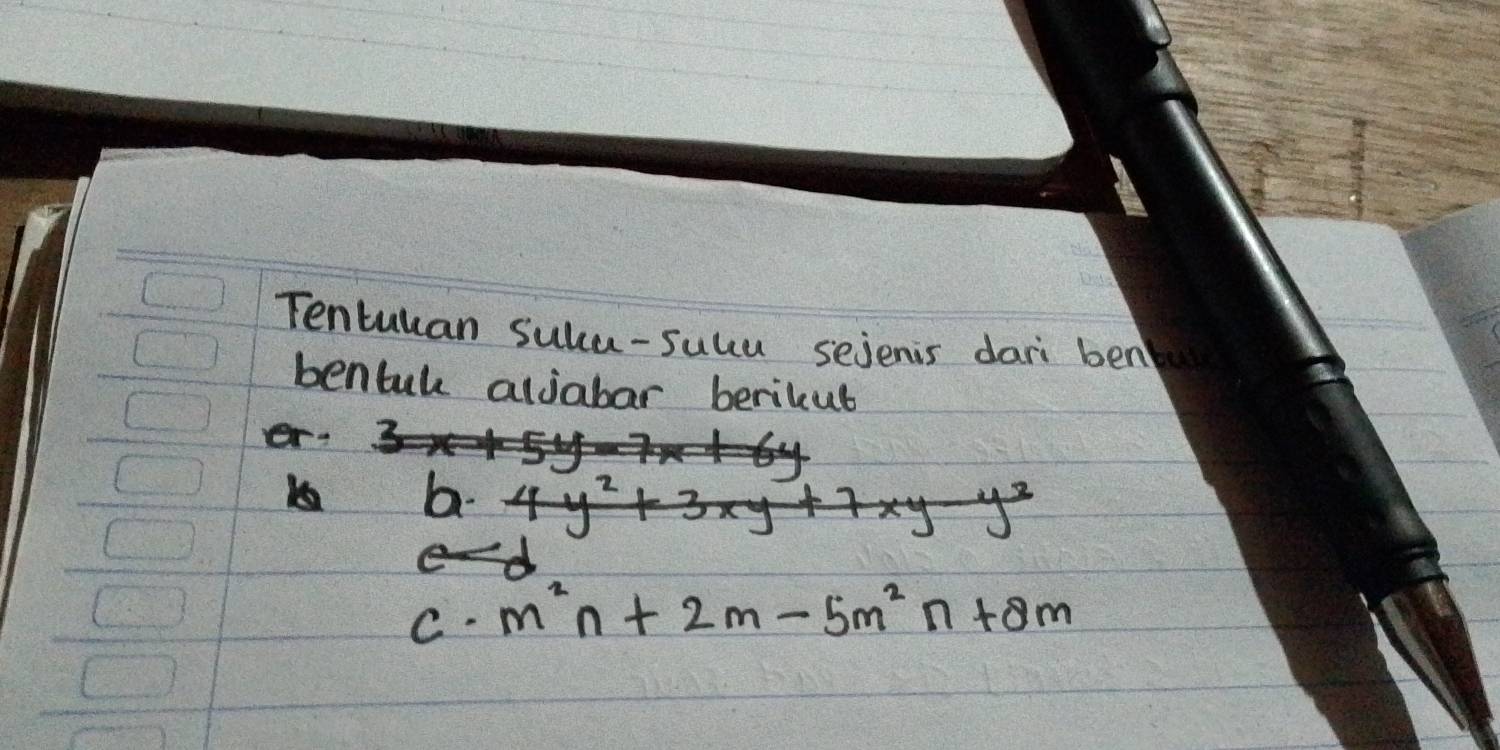 Tentukan suku-suku sejenis dari bentuk
bentuk aljabar berikut
a. 3x + 5y - 7x + 6y
b. 4y² + 3xy + 7xy - y²
c. m²n + 2m - 5m²n + 8m